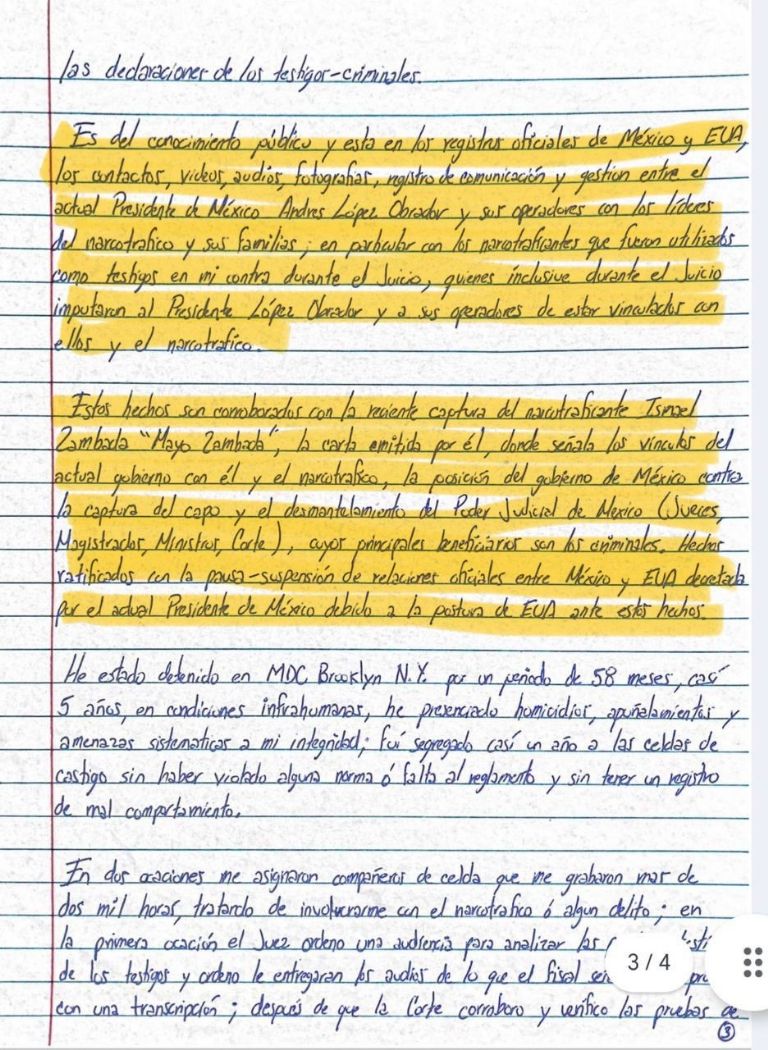 las declaraciones de los testigos-criminales.
Es del conocimiento público y esta en los registros oficiales de México y EUA,
los contactos, videos, audios, fotografias, registro de comunicación y gestion entre el
actual Presidente de México Andres López Obrador y sus operadores con los líderes
del narcotrafico y sus familias; en particular con los narcotraficantes que fueron utilizados
como testigos en mi contra durante el Juicio, quienes inclusive durante el Juicio
imputaron al Presidente López Obrador y a sus operadores de estar vinculados con
ellos y el narcotrafico.
Estos hechos son corroborados con la reciente captura del narcotraficante Ismael
Zambada "Mayo Zambada", la carta emitida por él, donde señala los vínculos del
actual gobierno con él y el narcotrafico, la posición del gobierno de México contra
la captura del capo y el desmantelamiento del Poder Judicial de México (Jueces,
Magistrados, Ministros, Corte), cuyos principales beneficiarios son los criminales. Hechos
ratificados con la pausa-suspensión de relaciones oficiales entre México y EUA decretada
por el actual Presidente de México debido a la postura de EUA ante estos hechos.
He estado detenido en MDC Brooklyn N.Y. por un periodo de 58 meses, casí
5 años, en condiciones infrahumanas, he presenciado homicidios, apuñalamientos y
amenazas sistematicas a mi integridad; fuí segregado casí un año a las celdas de
castigo sin haber violado alguna norma ó falta al reglamento y sin tener un registro
de mal comportamiento.
En dos ocaciones me asignaron compañeros de celda que me grabaron mas de
dos mil horas, tratando de involucrarme con el narcotrafico ó algun delito; en
la primera ocación el Juez ordeno una audiencia para analizar las
de los testigos y ordeno le entregaran los audios de lo que el fiscal
con una transcripción; después de que la Corte corroboro y verifico las pruebas de
3 / 4
3